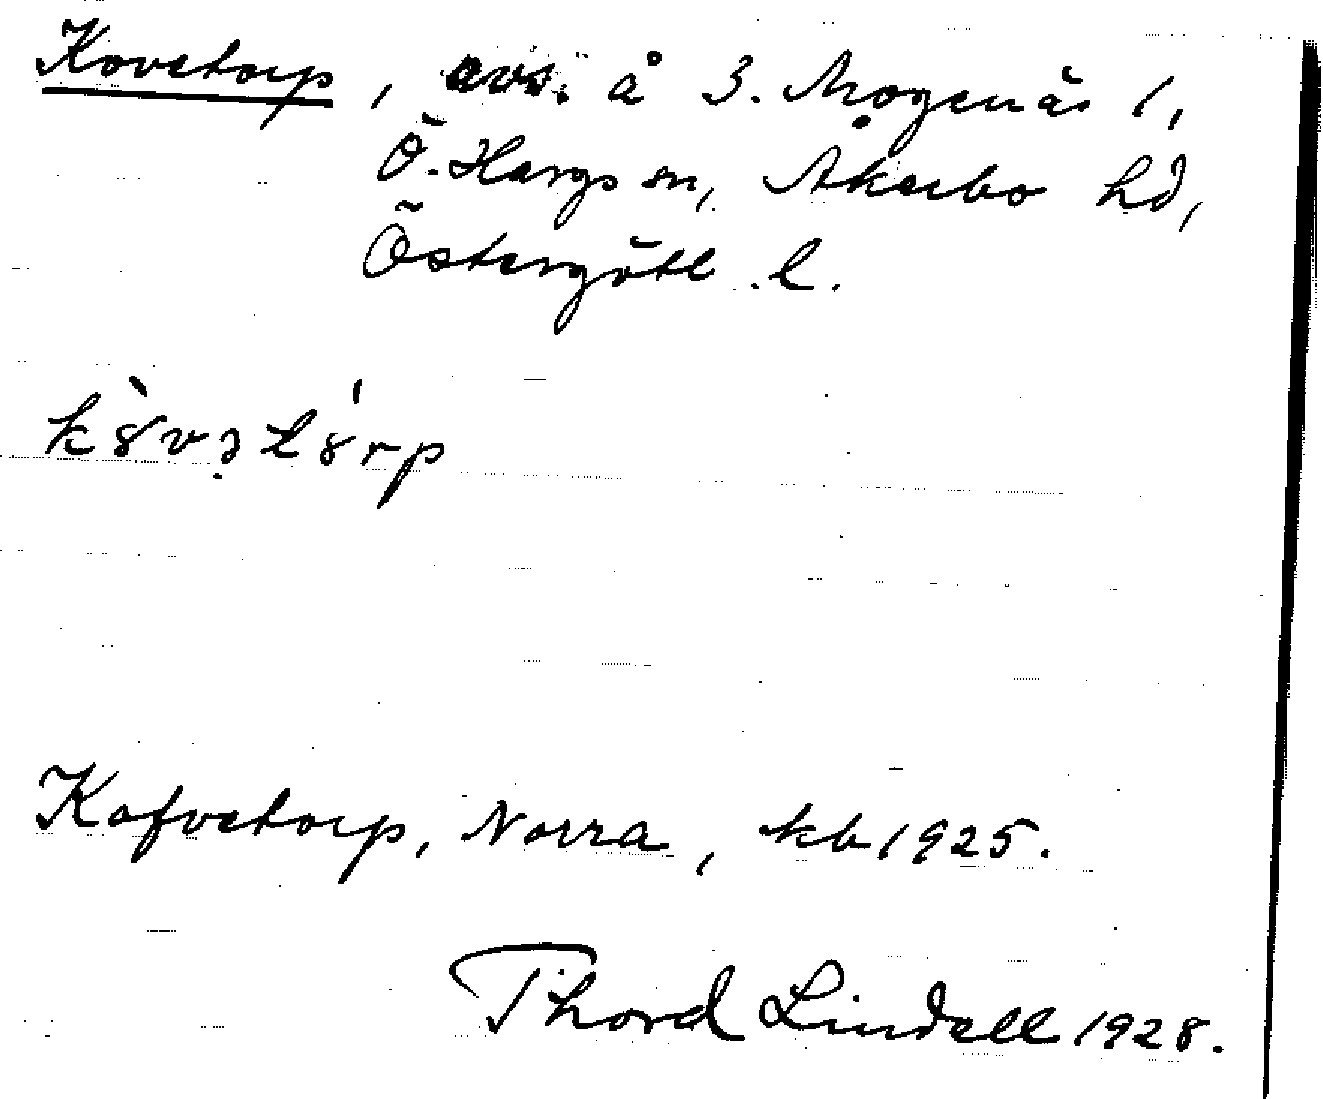 Kovetorp, avs. å S. Mogenäs 1,
Ö. Hargs sn, Åkerbo hd,
Östergötl. l.
kȣ̀vətȣ́rp
Kofvetorp, Norra, kb 1925.
Thord Lindell 1928.